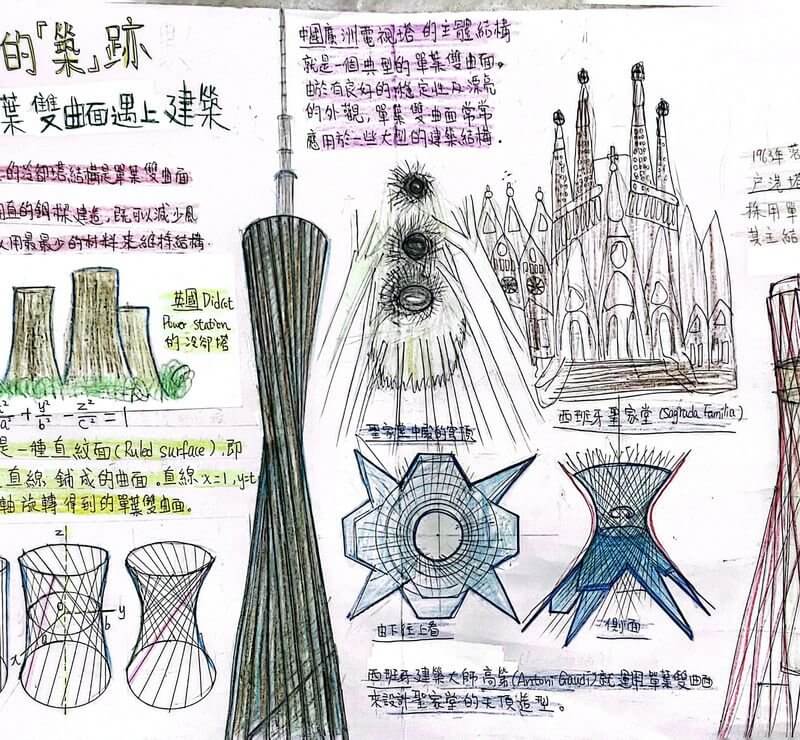 的「築」跡
葉雙曲面遇上建築
的冷卻塔結構是單葉雙曲面
直的鋼樑建造，既可以減少風
用最少的材料來維持結構。
英國 Didcot
Power station
的冷卻塔
x²/a² + y²/b² - z²/c² = 1
是一種直紋面(Ruled surface), 即
直線鋪成的曲面。直線 x=1, y=t
軸旋轉得到的單葉雙曲面。
z
y
x
a
b
中國廣洲電視塔的主體結構
就是一個典型的單葉雙曲面。
由於有良好的穩定性及漂亮
的外觀，單葉雙曲面常常
應用於一些大型的建築結構。
西班牙聖家堂 (Sagrada Familia)
由下往上看
側面
西班牙建築大師高第(Antoni Gaudi)就運用單葉雙曲面
來設計聖家堂的天頂造型。
1963年落
戶港塔
採用單
其主結